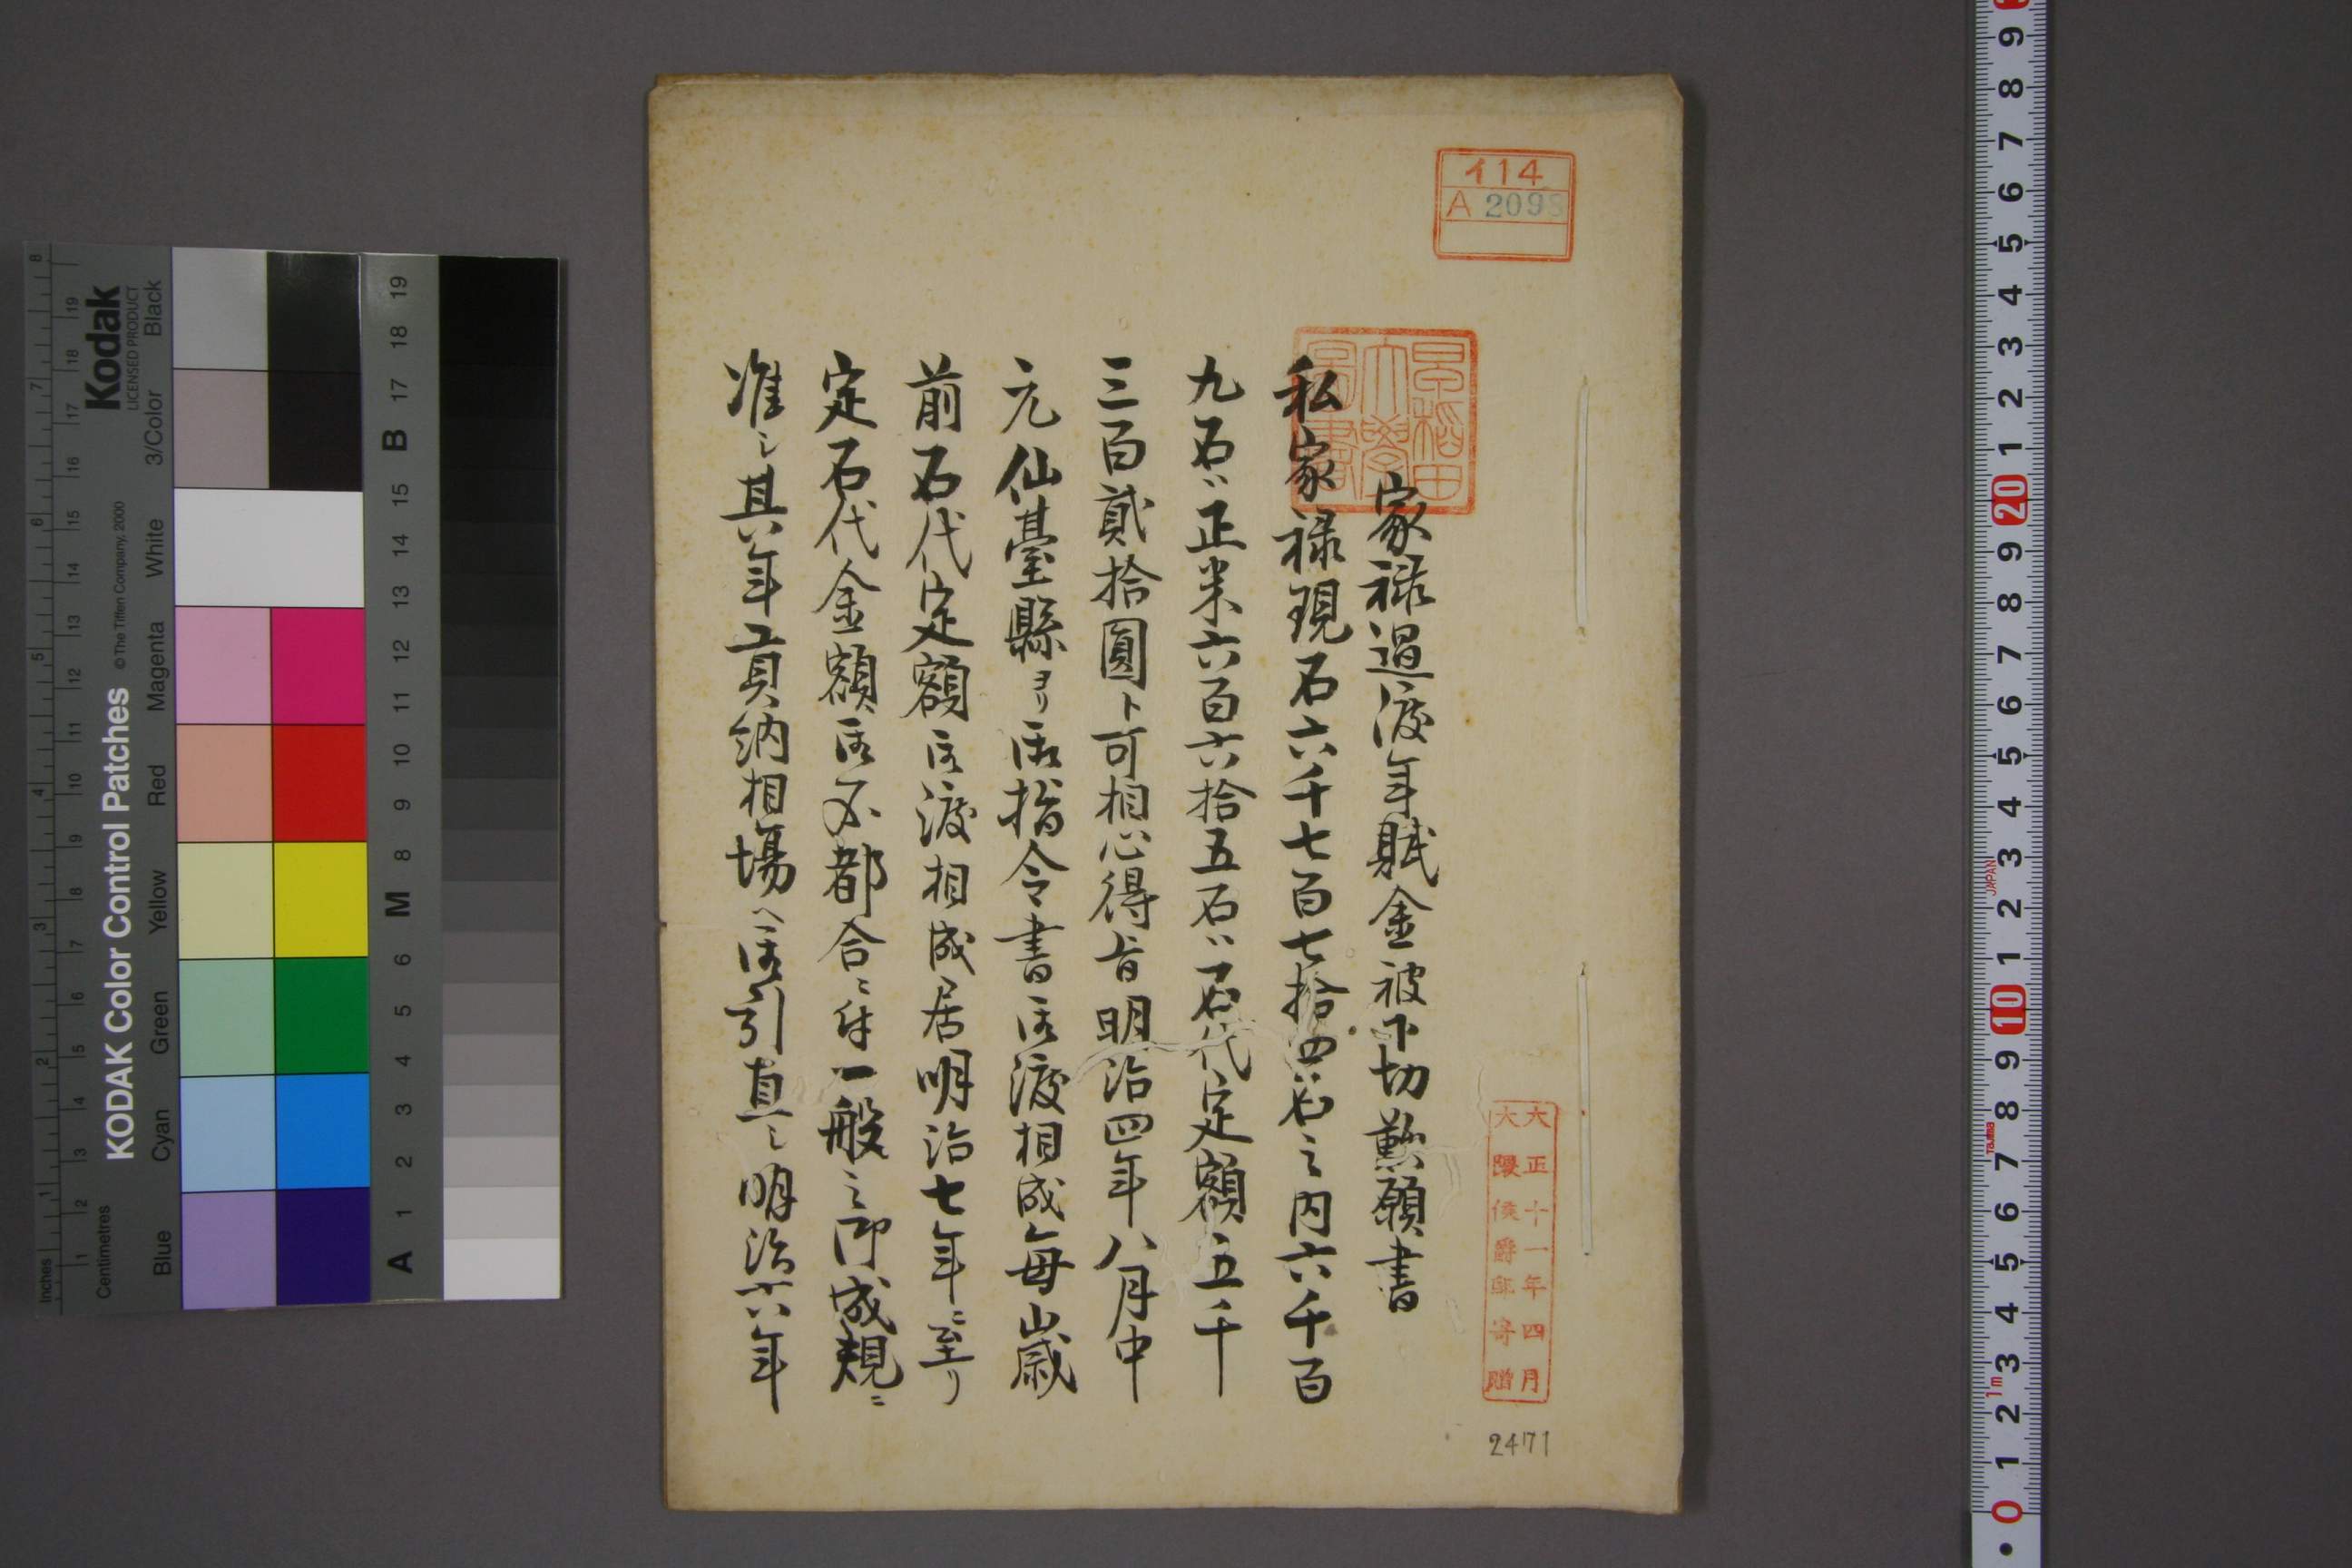 イ14
A 2098
早稲田
大學
圖書
家禄過渡年賦金被下切歎願書
私家禄現石六千七百七拾四石之内六千百
九石ハ正米六百六拾五石ハ石代定額五千
三百貳拾圓ト可相心得旨明治四年八月中
元仙臺縣ヨリ御指令書御渡相成毎歳
前石代定額御渡相成居明治七年ニ至リ
定石代金額御不都合ニ付一般之御成規ニ
准シ其年貢納相場ヘ御引直シ明治六年
大正十一年四月
大隈侯爵邸寄贈
2471
KODAK Color Control Patches
© The Tiffen Company, 2000
Kodak
LICENSED PRODUCT
Inches
Centimetres
Blue
Cyan
Green
Yellow
Red
Magenta
White
3/Color
Black
A 1 2 3 4 5 6 M 8 9 10 11 12 13 14 15 B 17 18 19
JAPAN
Tajima
1m